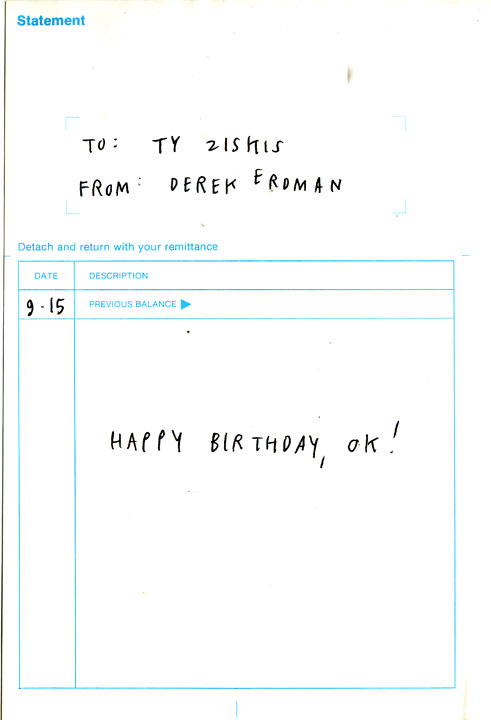 Statement
TO: TY ZISKIS
FROM: DEREK ERDMAN
Detach and return with your remittance
DATE DESCRIPTION
9-15 PREVIOUS BALANCE ▶
HAPPY BIRTHDAY, OK!